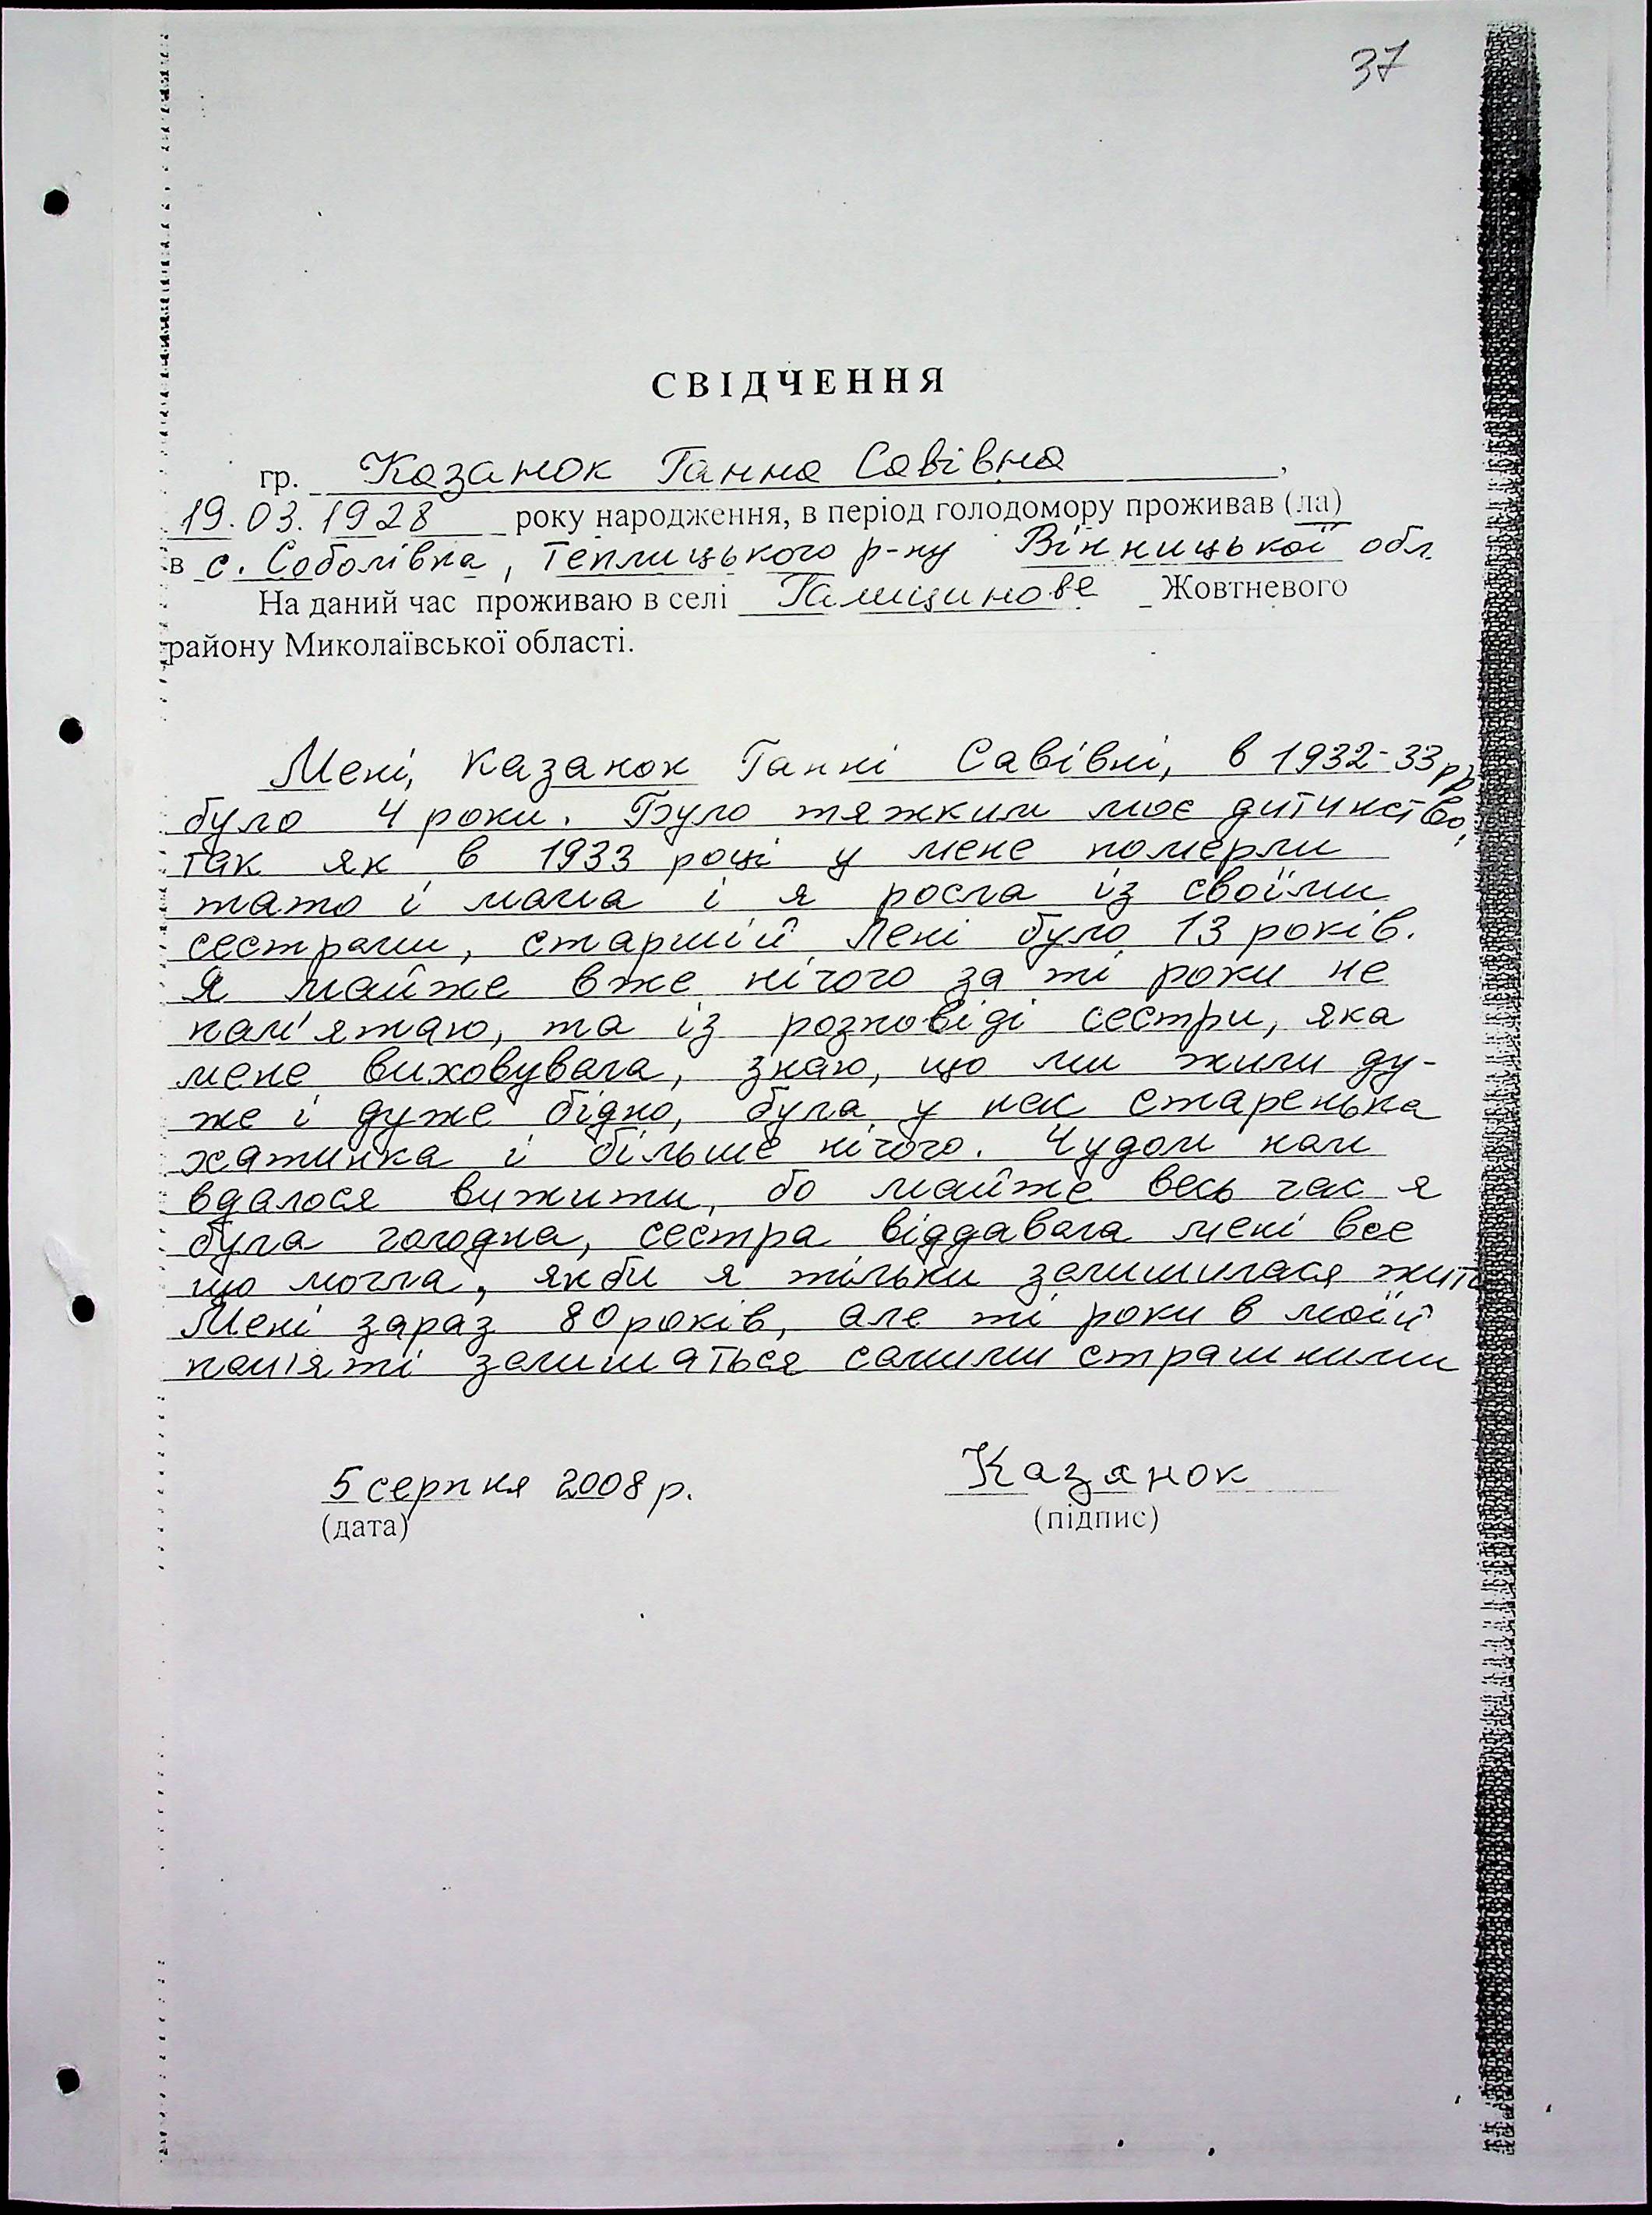 37
СВІДЧЕННЯ
гр. Казанок Ганна Савівна,
19.03.1928 року народження, в період голодомору проживав (ла)
в с. Соболівка, Теплицького р-ну Вінницької обл.
На даний час проживаю в селі Галицинове Жовтневого
району Миколаївської області.
Мені, Казанок Ганні Савівні, в 1932-33 рр
було 4 роки. Було тяжким моє дитинство,
так як в 1933 році у мене померли
тато і мама і я росла із своїми
сестрами, старшій Лені було 13 років.
Я майже вже нічого за ті роки не
пам'ятаю, та із розповіді сестри, яка
мене виховувала, знаю, що ми жили ду-
же і дуже бідно, була у нас старенька
хатинка і більше нічого. Чудом нам
вдалося вижити, бо майже весь час я
була голодна, сестра віддавала мені все
що могла, якби я тільки залишилася жити
Мені зараз 80 років, але ті роки в моїй
пам'яті залишаться самими страшними
5 серпня 2008 р. Казанок
(дата) (підпис)